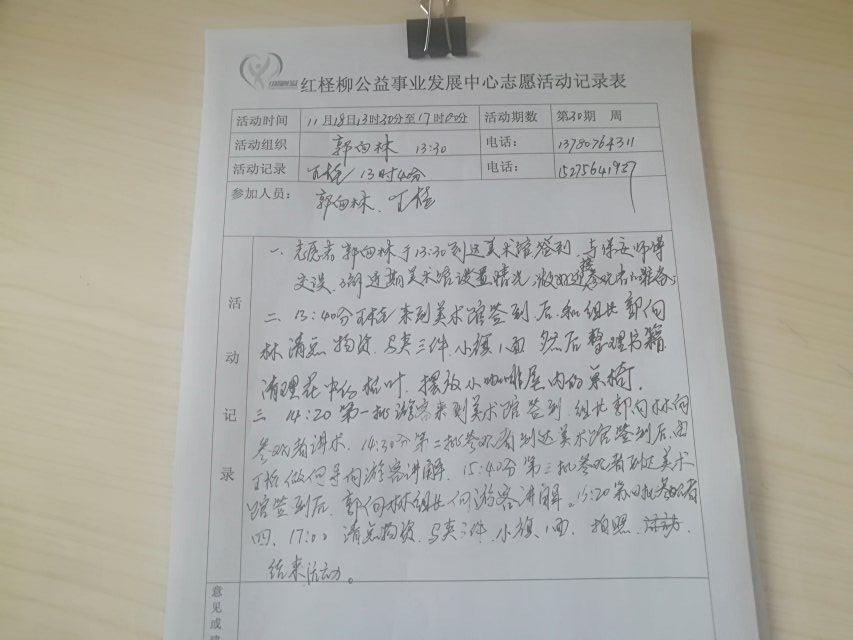 红柽柳公益事业发展中心志愿活动记录表
活动时间 11月18日13时30分至17时00分 活动期数 第30期 周
活动组织 郭向林 13:30 电话: 13780764311
活动记录 丁柽 13时40分 电话: 15275641927
参加人员: 郭向林、丁柽
活动记录
一、志愿者郭向林于13:30到达美术馆签到,与保安师傅
交谈,了解近期美术馆设置情况,做好迎接参观者的准备。
二、13:40分丁柽来到美术馆签到后,和组长郭向
林清点物资,马夹三件,小旗1面,然后整理书籍
清理花中的枯叶,摆放小咖啡屋内的桌椅。
三、14:20第一批游客来到美术馆签到,组长郭向林向
参观者讲术,14:30分第二批参观者到达美术馆签到后,由
丁柽做向导向游客讲解,15:40分第三批参观者到达美术
馆签到后,郭向林组长向游客讲解。15:20第四批参观者
四、17:00 清点物资,马夹三件,小旗1面,拍照,
结束活动。
意见或建